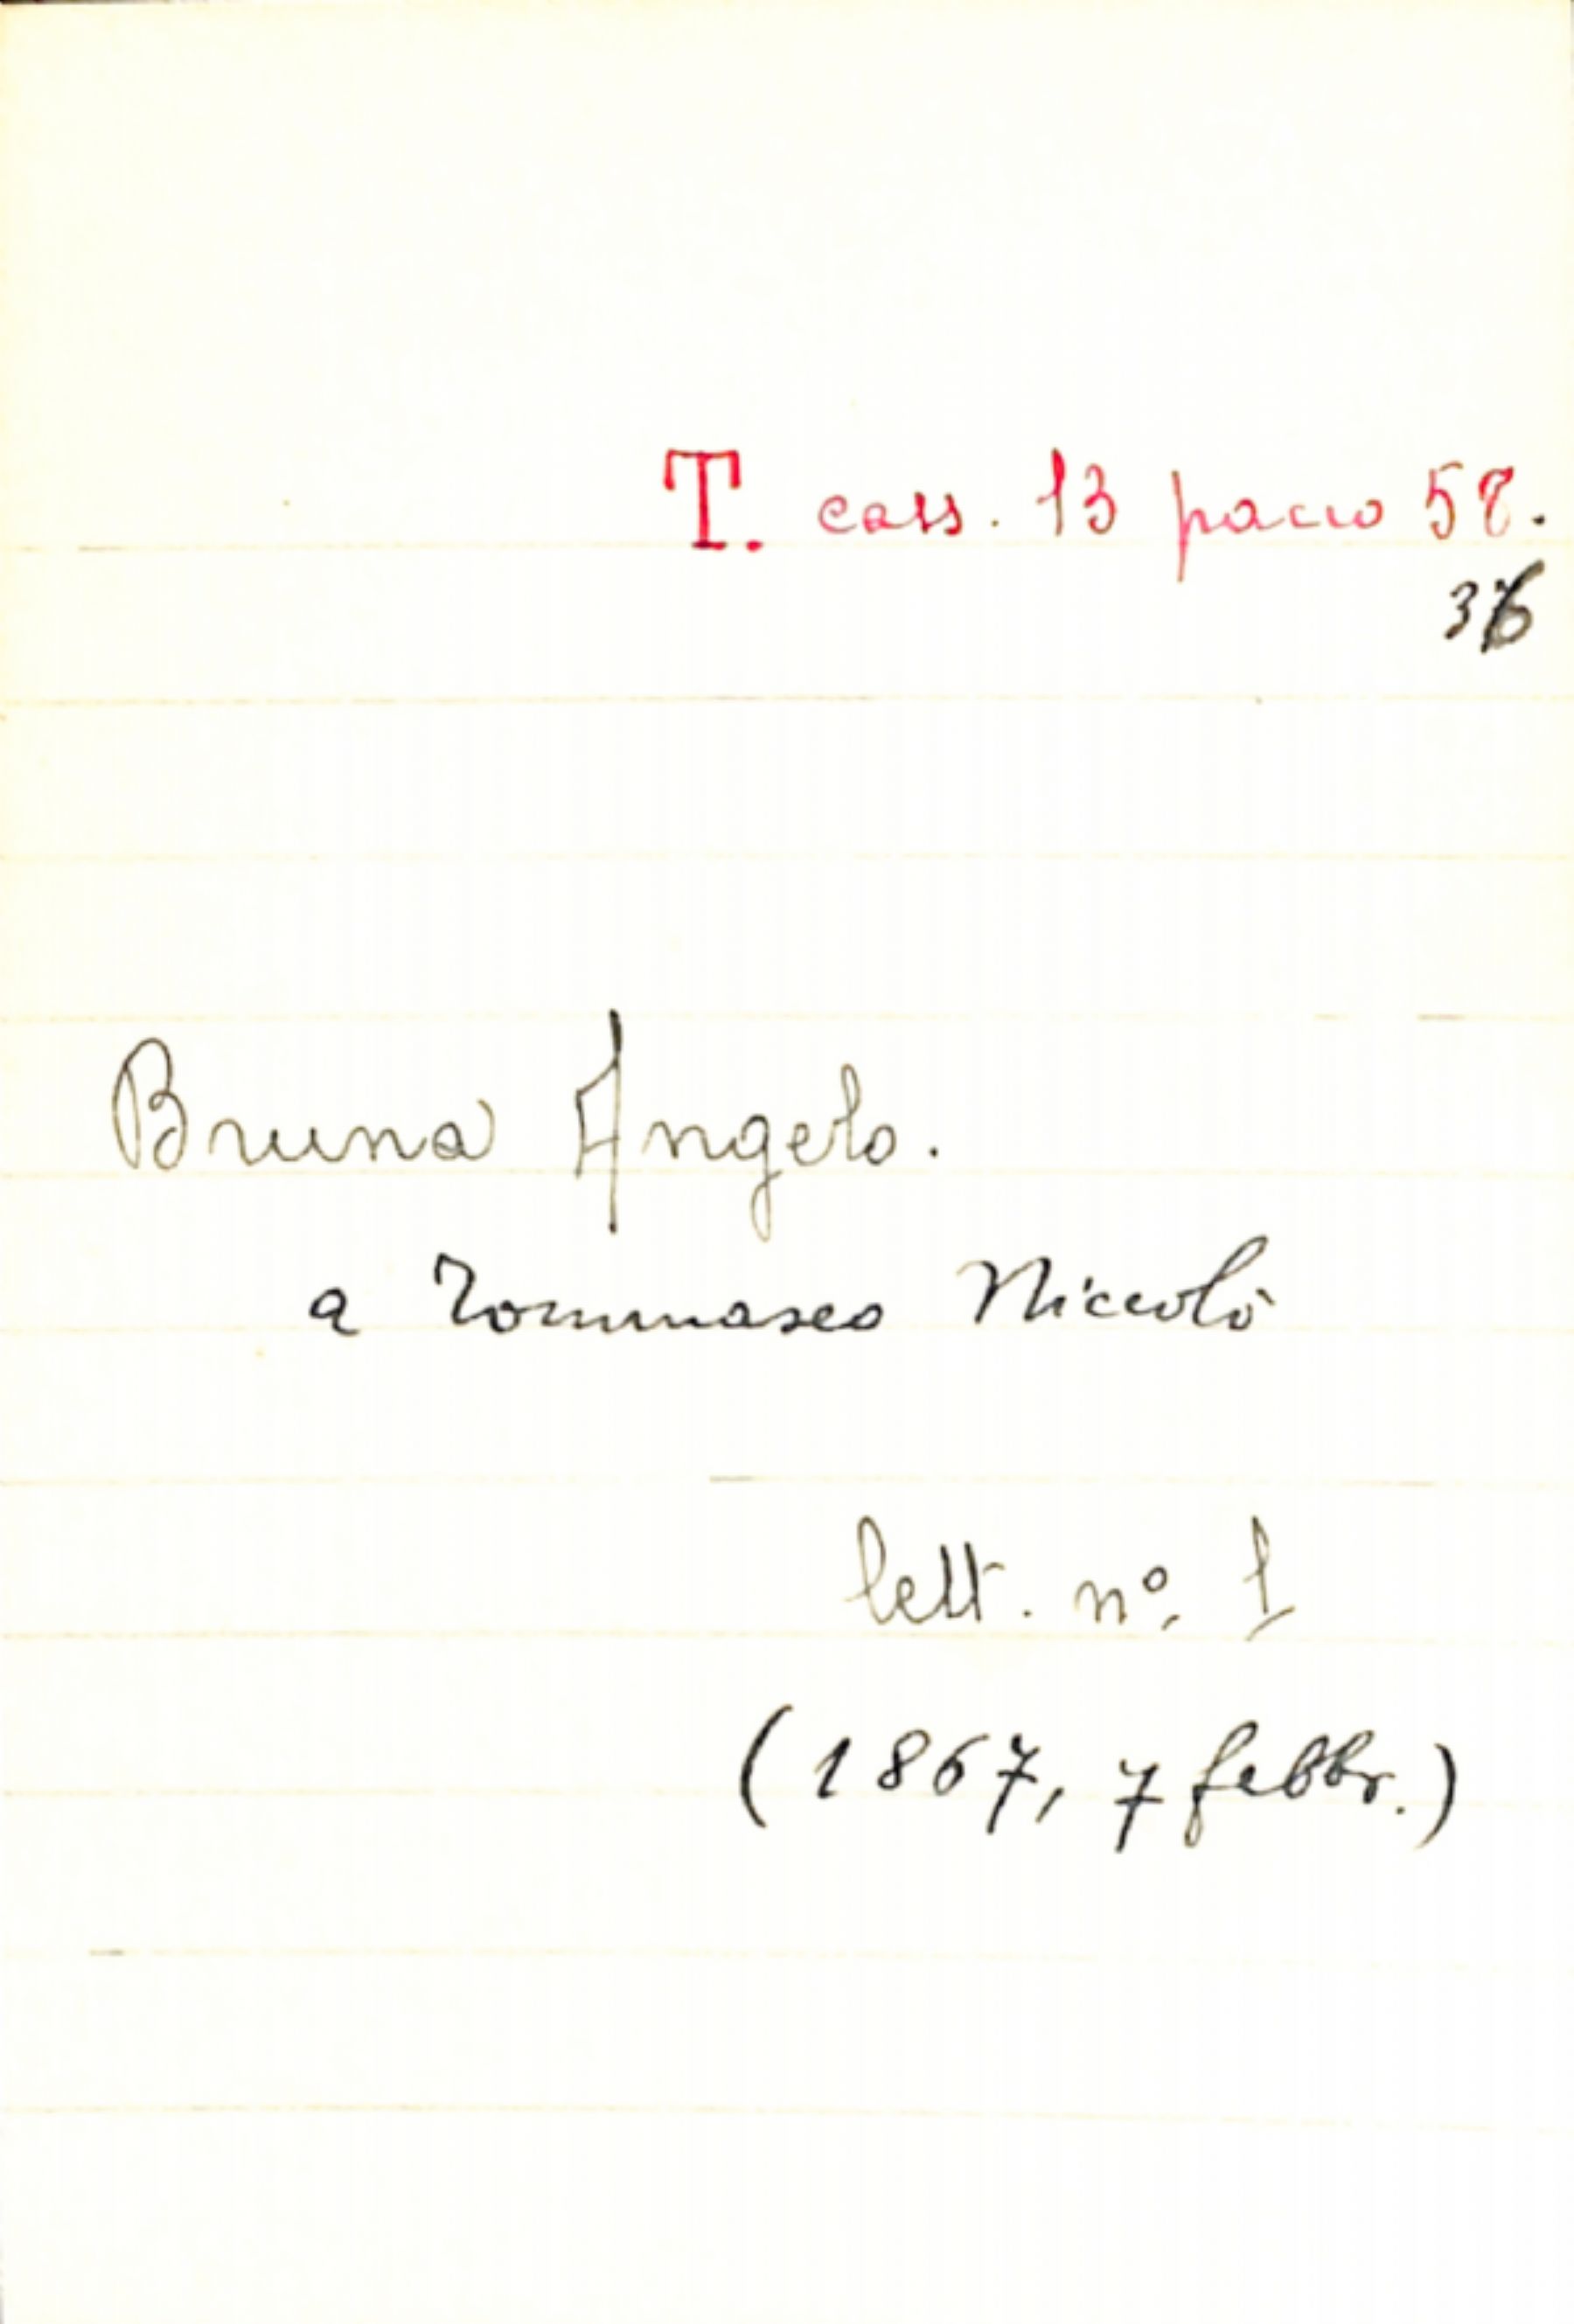 T. cass. 13 pacco 58.
36
Bruna Angelo.
a Tommaseo Niccolò
lett. nº. 1
(1867, 7 febbr.)